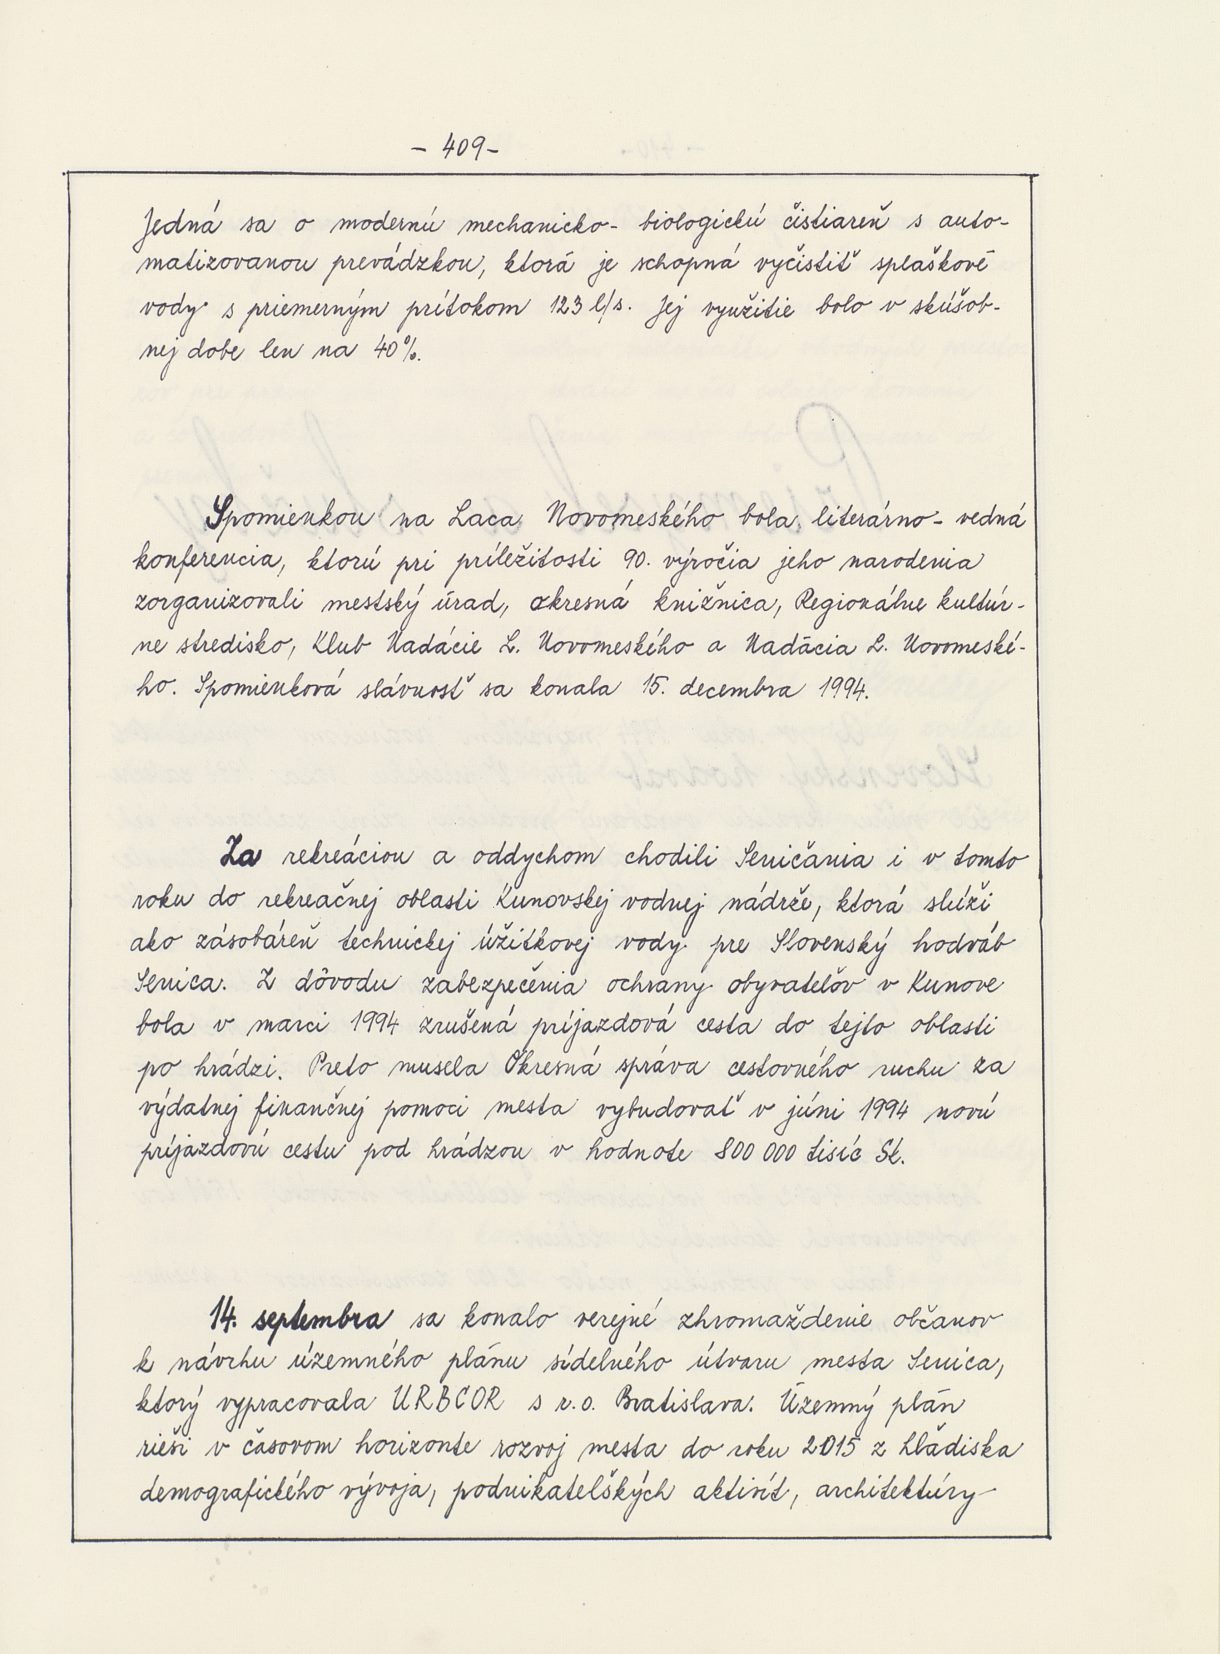 - 409-
Jedná sa o modernú mechanicko- biologickú čistiareň s auto-
matizovanou prevádzkou, ktorá je schopná vyčistiť splaškové
vody s priemerným prítokom 123 l/s. Jej využitie bolo v skúšob-
nej dobe len na 40%.
Spomienkou na Laca Novomeského bola literárno- vedná
konferencia, ktorú pri príležitosti 90. výročia jeho narodenia
zorganizovali mestský úrad, okresná knižnica, Regionálne kultúr-
ne stredisko, Klub Nadácie L. Novomeského a Nadácia L. Novomeské-
ho. Spomienková slávnosť sa konala 15. decembra 1994.
Za rekreáciou a oddychom chodili Seničania i v tomto
roku do rekreačnej oblasti Kunovskej vodnej nádrže, ktorá slúži
ako zásobáreň technickej úžitkovej vody pre Slovenský hodváb
Senica. Z dôvodu zabezpečenia ochrany obyvateľov v Kunove
bola v marci 1994 zrušená príjazdová cesta do tejto oblasti
po hrádzi. Preto musela Okresná správa cestovného ruchu za
výdatnej finančnej pomoci mesta vybudovať v júni 1994 novú
príjazdovú cestu pod hrádzou v hodnote 800 000 tisíc Sk.
14. septembra sa konalo verejné zhromaždenie občanov
k návrhu územného plánu sídelného útvaru mesta Senica,
ktorý vypracovala URBCOR s r.o. Bratislava. Územný plán
rieši v časovom horizonte rozvoj mesta do roku 2015 z hľadiska
demografického vývoja, podnikateľských aktivít, architektúry